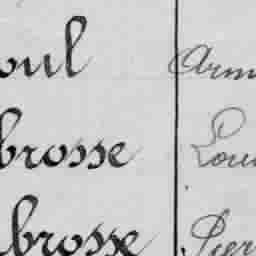 oul Arm
brosse Loui
brosse Pier